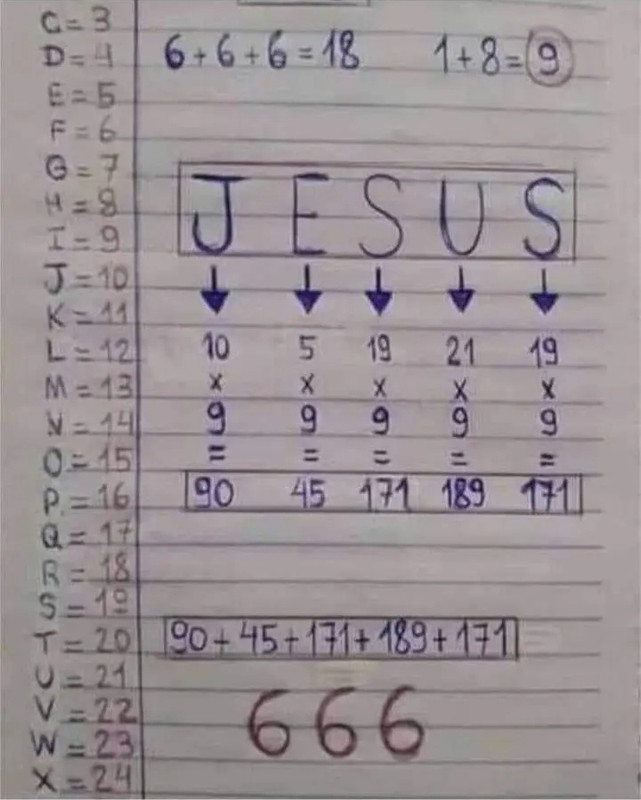 C = 3
D = 4
E = 5
F = 6
G = 7
H = 8
I = 9
J = 10
K = 11
L = 12
M = 13
N = 14
O = 15
P = 16
Q = 17
R = 18
S = 19
T = 20
U = 21
V = 22
W = 23
X = 24
6 + 6 + 6 = 18 1 + 8 = 9
J E S U S
10 5 19 21 19
x x x x x
9 9 9 9 9
= = = = =
90 45 171 189 171
90 + 45 + 171 + 189 + 171
6 6 6